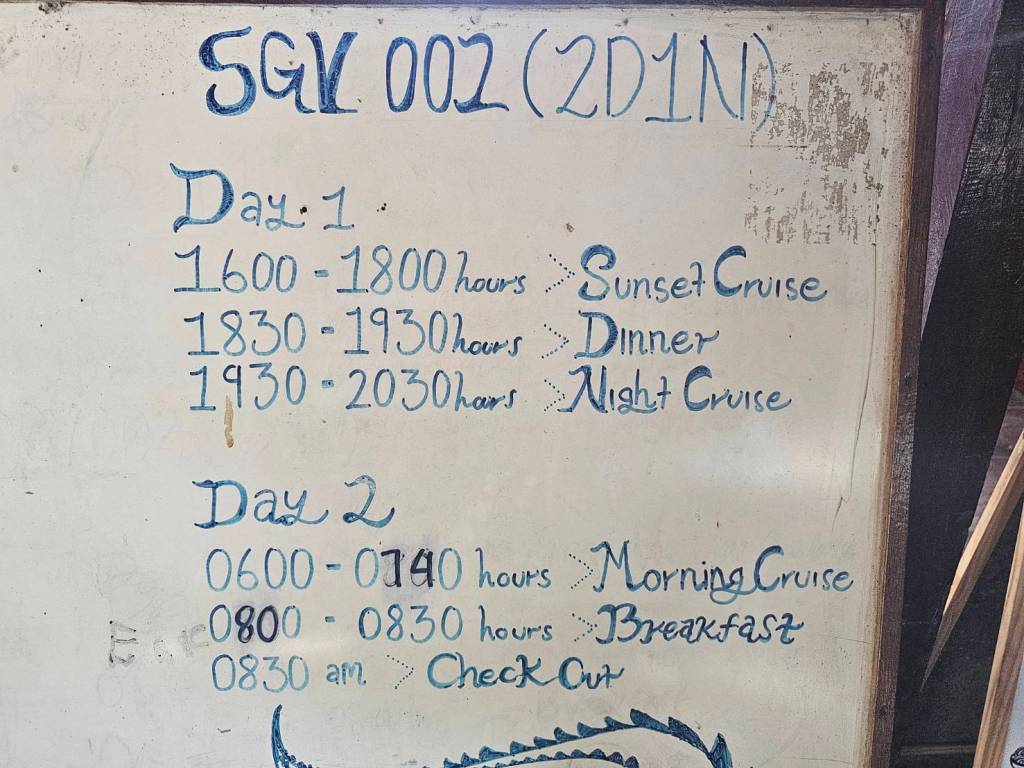 SGV 002 (2D1N)
Day 1
1600 - 1800 hours > Sunset Cruise
1830 - 1930 hours > Dinner
1930 - 2030 hours > Night Cruise
Day 2
0600 - 0740 hours > Morning Cruise
0800 - 0830 hours > Breakfast
0830 am > Check Out